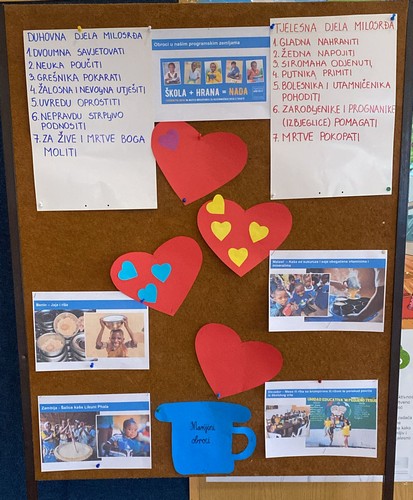 DUHOVNA DJELA MILOSRĐA
1. DVOUMNA SAVJETOVATI
2. NEUKA POUČITI
3. GREŠNIKA POKARATI
4. ŽALOSNA I NEVOLJNA UTJEŠITI
5. UVREDU OPROSTITI
6. NEPRAVDU STRPLJIVO
PODNOSITI
7. ZA ŽIVE I MRTVE BOGA
MOLITI
Obroci u našim programskim zemljama
ŠKOLA + HRANA = NADA
TJELESNA DJELA MILOSRĐA
1. GLADNA NAHRANITI
2. ŽEDNA NAPOJITI
3. SIROMAHA ODJENUTI
4. PUTNIKA PRIMITI
5. BOLESNIKA I UTAMNIČENIKA
POHODITI
6. ZAROBLJENIKE I PROGNANIKE
(IZBJEGLICE) POMAGATI
7. MRTVE POKOPATI
Benin – Jaja i riža
Zambija – Šalica kaše Likuni Phala
Manjini
obroci